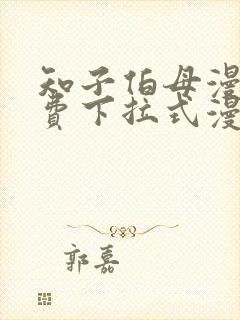 知子伯母漫
費下拉式漫
郭嘉